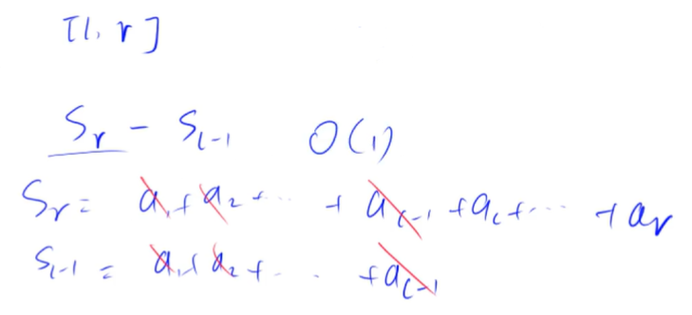 [l, r]
S_r - S_{l-1} O(1)
S_r = a_1 + a_2 + ... + a_{l-1} + a_l + ... + a_r
S_{l-1} = a_1 + a_2 + ... + a_{l-1}